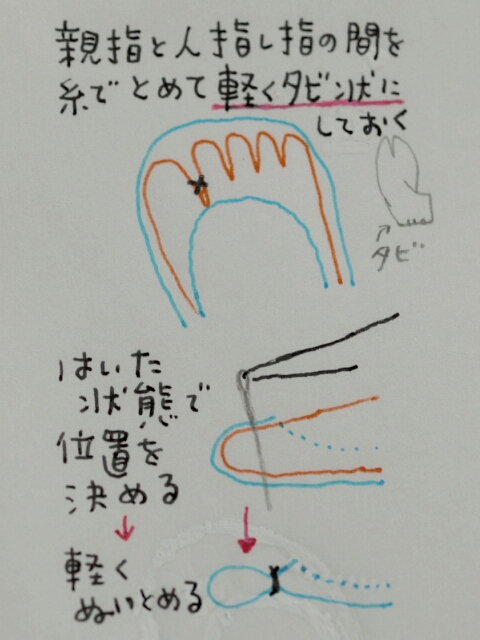 親指と人指し指の間を
糸でとめて軽くタビ状に
しておく
タビ
はいた
状態で
位置を
決める
軽く
ぬいとめる